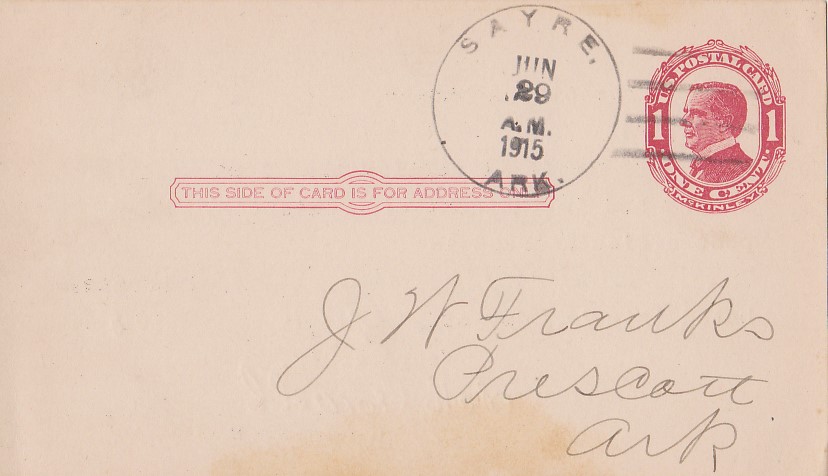 SAYRE,
JUN
29
A.M.
1915
ARK.
U.S. POSTAL CARD
1 1
ONE CENT.
McKINLEY
THIS SIDE OF CARD IS FOR ADDRESS ONLY
J W Franks
Prescott
Ark